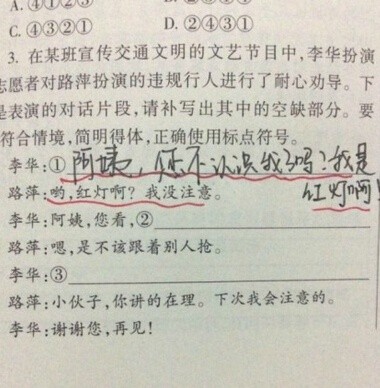 A.④①②③
C.④③②① D.②④③①
3. 在某班宣传交通文明的文艺节目中,李华扮演
志愿者对路萍扮演的违规行人进行了耐心劝导。下
是表演的对话片段,请补写出其中的空缺部分。要
符合情境,简明得体,正确使用标点符号。
李华:① 阿姨,您不认识我了吗?我是
红灯啊!
路萍:哟,红灯啊?我没注意。
李华:阿姨,您看,②
路萍:嗯,是不该跟着别人抢。
李华:③
路萍:小伙子,你讲的在理。下次我会注意的。
李华:谢谢您,再见!